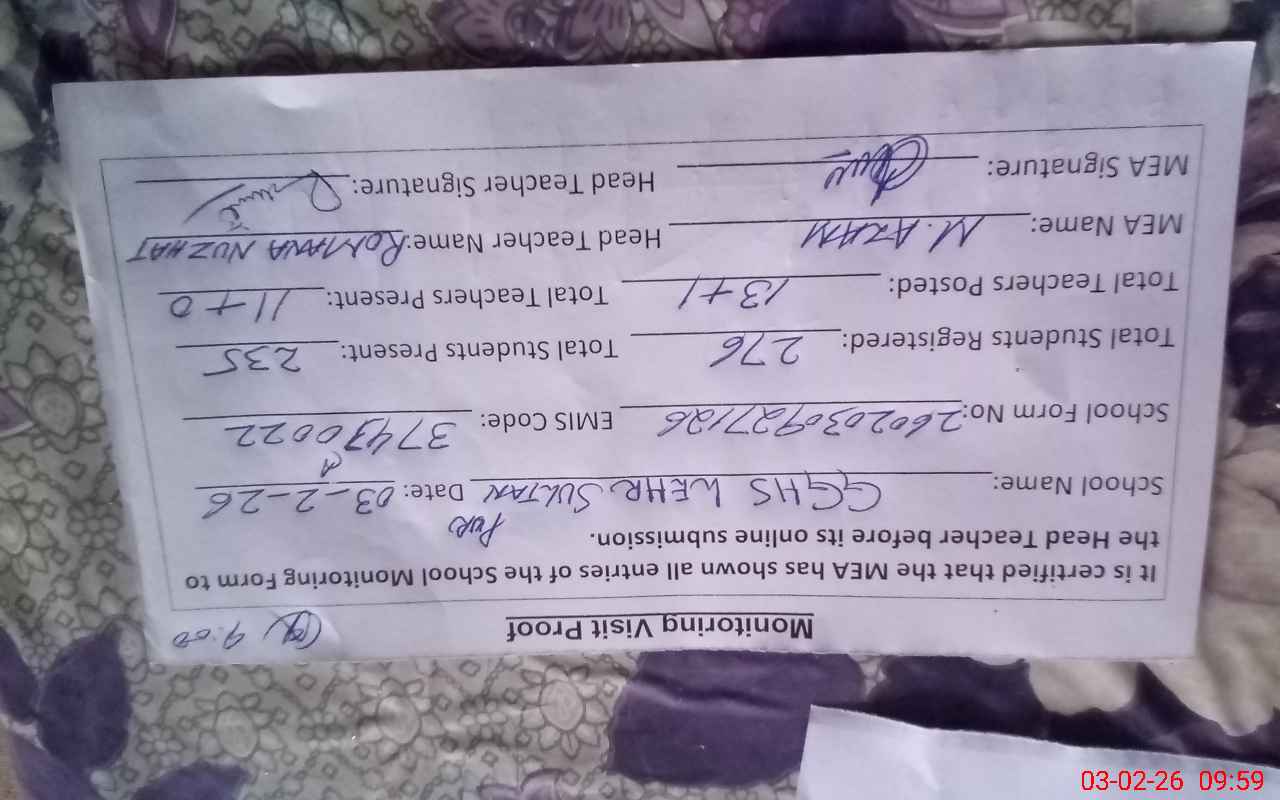 Monitoring Visit Proof
@ 9:00
It is certified that the MEA has shown all entries of the School Monitoring Form to
the Head Teacher before its online submission.
School Name: GGHS LEHR SULTAN PUR Date: 03-2-26
School Form No: 2602030927126 EMIS Code: 37430022
Total Students Registered: 276 Total Students Present: 235
Total Teachers Posted: 13+1 Total Teachers Present: 11+0
MEA Name: M. AZAM Head Teacher Name: ROMANA NUZHAT
MEA Signature: Head Teacher Signature:
03-02-26 09:59